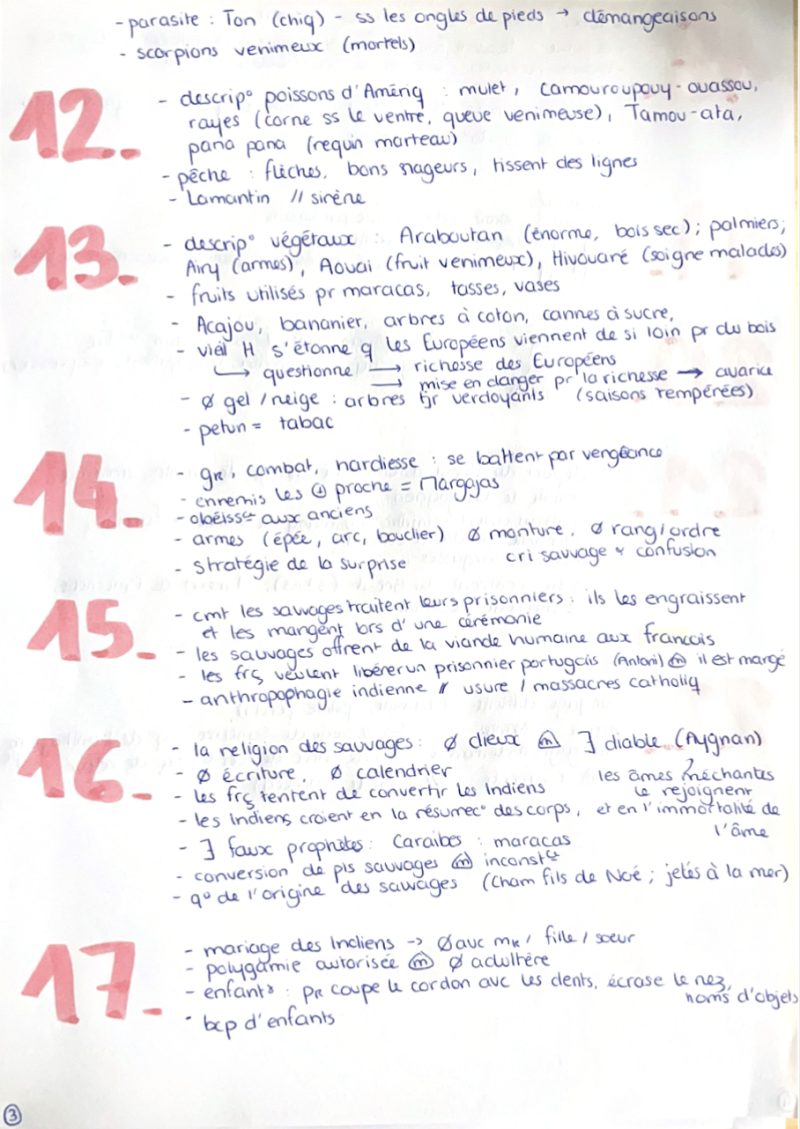 - parasite : Ton (chiq) - ss les ongles de pieds → démangeaisons
- scorpions venimeux (mortels)
12.
- descrip° poissons d'Amériq : mulet, camouroupouy-ouassou,
rayes (corne ss le ventre, queue venimeuse), Tamou-ata,
pana pana (requin marteau)
- pêche : flèches, bons nageurs, tissent des lignes
- Lamantin // sirène
13.
- descrip° végétaux : Araboutan (énorme, bois sec) ; palmiers ;
Airy (armes), Aouai (fruit venimeux), Hivouaré (soigne malades)
- fruits utilisés pr maracas, tasses, vases
- Acajou, bananier, arbres à coton, cannes à sucre,
- vieil H s'étonne q les Européens viennent de si loin pr du bois
↳ questionne → richesse des Européens
→ mise en danger pr la richesse → avarice
- ø gel / neige : arbres tjr verdoyants (saisons tempérées)
- petun = tabac
14.
- gre, combat, hardiesse : se battent par vengeance
- ennemis les ⊕ proche = Margajas
- obéissce aux anciens
- armes (épée, arc, bouclier) ø monture, ø rang/ordre
- stratégie de la surprise cri sauvage + confusion
15.
- cmt les sauvages traitent leurs prisonniers : ils les engraissent
et les mangent lors d'une cérémonie
- les sauvages offrent de la viande humaine aux francais
- les frç veulent libérer un prisonnier portugais (Antoni) m il est mangé
- anthropophagie indienne // usure / massacres catholiq
16.
- la religion des sauvages : ø dieux m ∃ diable (Aygnan)
- ø écriture, ø calendrier les âmes méchantes
le rejoignent
- les frç tentent de convertir les Indiens
- les Indiens croient en la résurrec° des corps, et en l'immortalité de
l'âme
- ∃ faux prophètes : Caraïbes : maracas
- conversion de pls sauvages m inconstce
- q° de l'origine des sauvages (Cham fils de Noé ; jetés à la mer)
17.
- mariage des Indiens -> ø avc mr / fille / sœur
- polygamie autorisée m ø adultère
- enfants : pr coupe le cordon avc les dents, écrase le nez,
noms d'objets
- bcp d'enfants
3